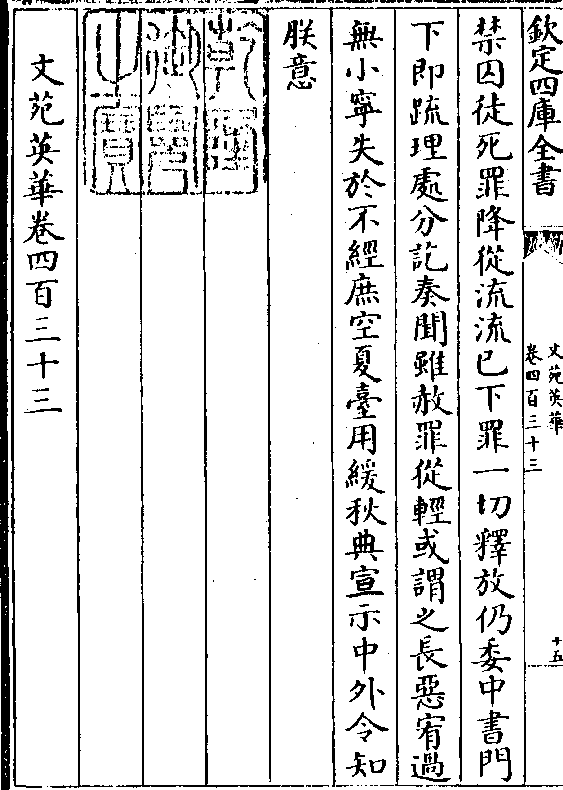 欽定四庫全書
文苑英華
卷四百三十三
十五
禁囚徒死罪降從流流已下罪一切釋放仍委中書門
下即疏理處分訖奏聞雖赦罪從輕或謂之長惡宥過
無小寧失於不經庶空夏臺用緩秋典宣示中外令知
朕意
乾隆
御覽
之寶
文苑英華卷四百三十三